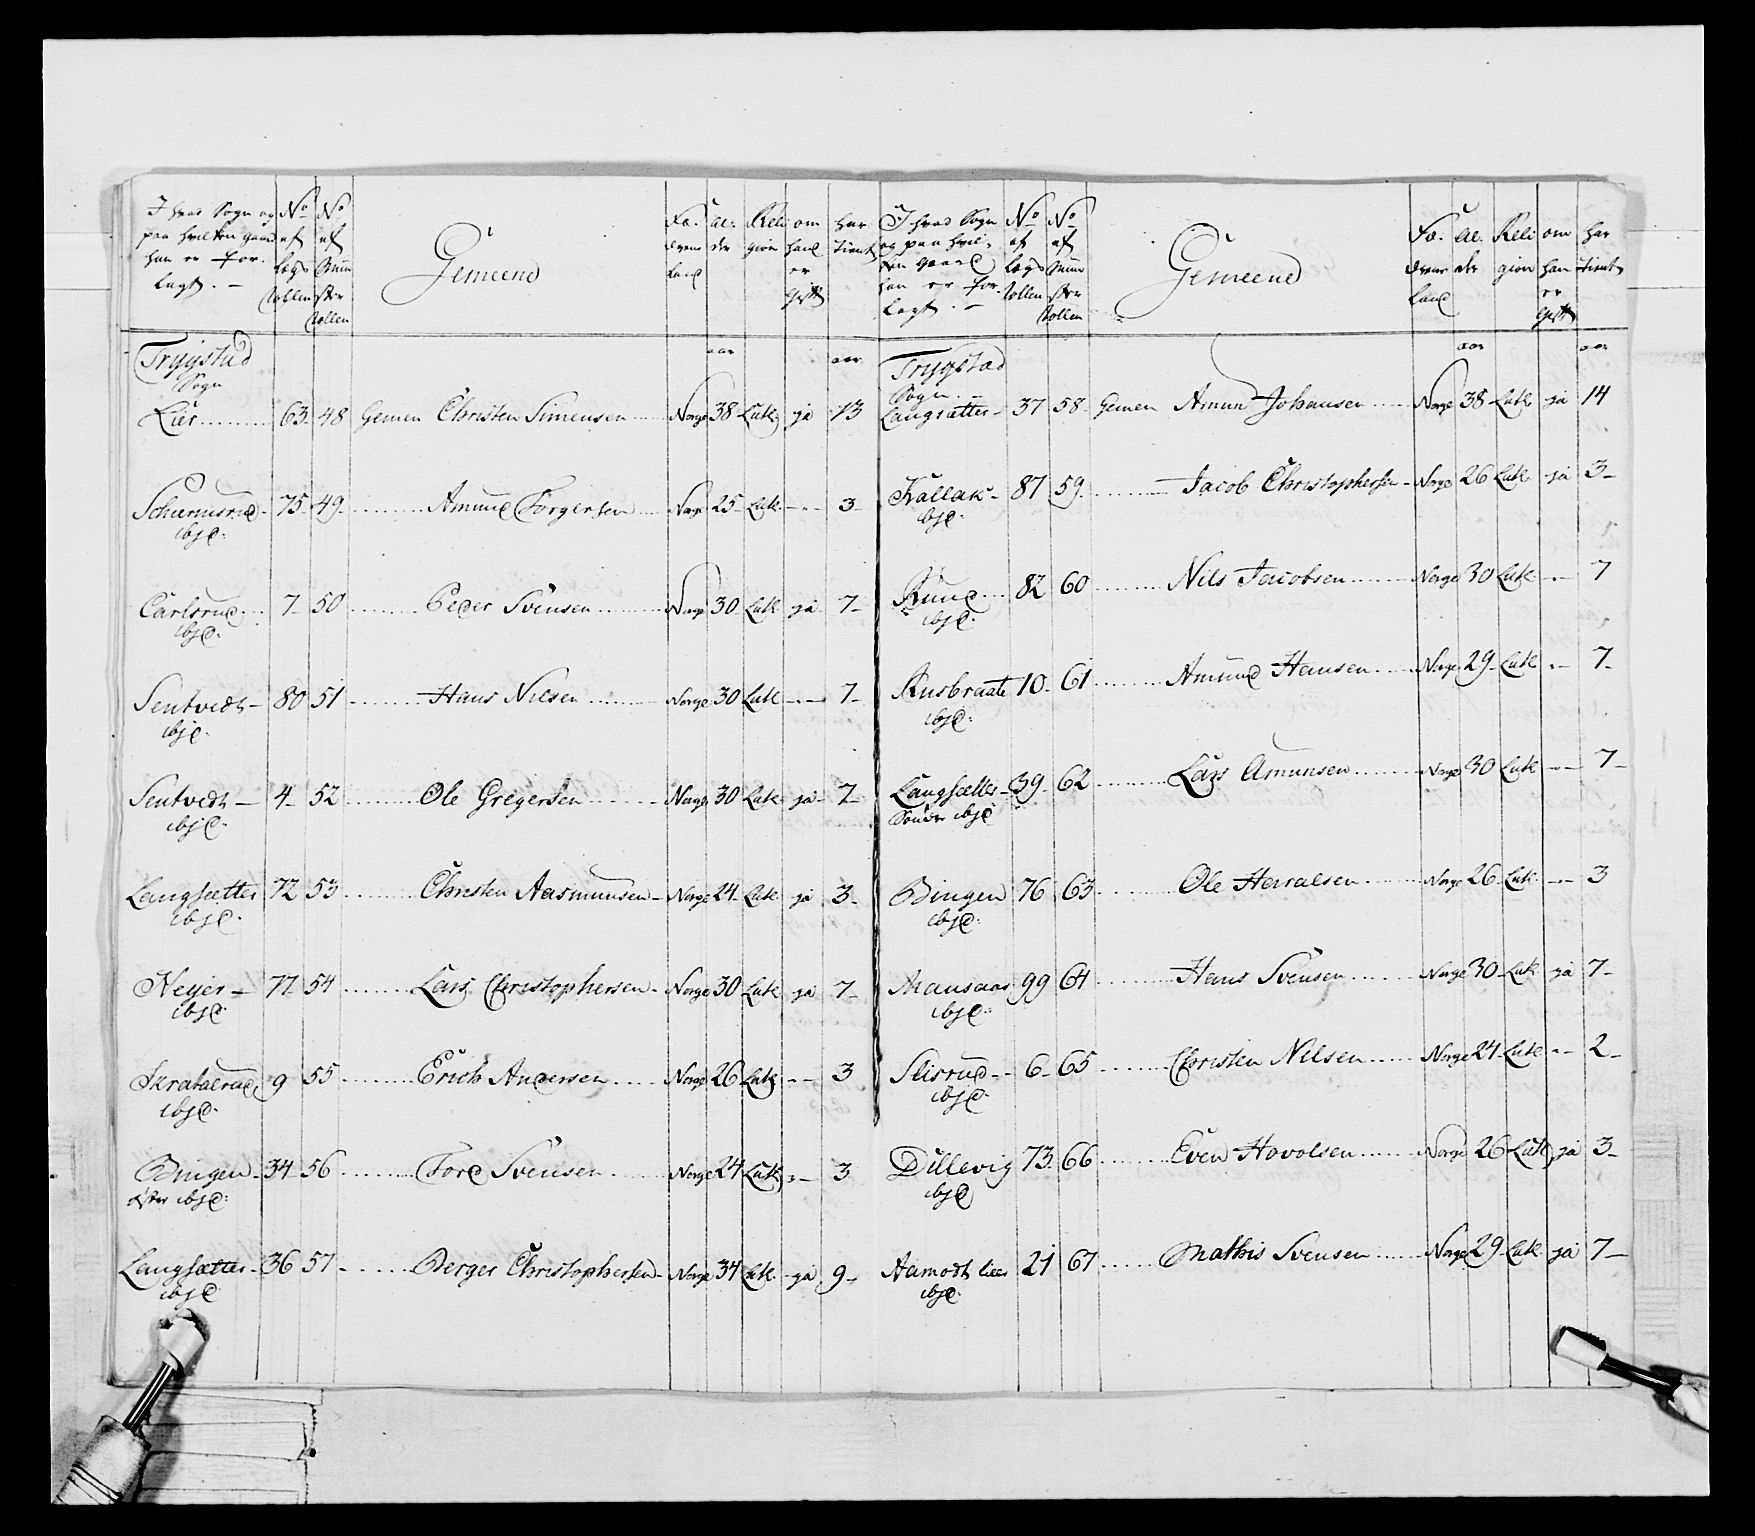 I hvad Sogn og
paa hvilken gaard
han er for-
lagt. —
No af lægs rollen
No af Mun ster rollen
Gemeend
Fæ- drene land
al- der
Reli gion
om hand er gift
har tient
Trygstad
Sogn
aar
aar
Lier 63 48 Gemen Christen Simensen Norge 38 Luth. ja 13
75 49 Amund Torgersen Norge 25 Luth. - " - 3
ibjd:
Carlsrud 7 50 Peder Svensen Norge 30 Luth. ja 7
ibjd:
Sentvedt 80 51 Hans Nilsen Norge 30 Luth - " - 7
ibjd:
Sentvedt 4 52 Ole Gregersen Norge 30 Luth ja 7
ibjd:
Langsætter 72 53 Christen Aasmundsen Norge 24 Luth ja 3
ibjd:
Heyer 77 54 Lars Christophersen Norge 30 Luth ja 7
ibjd:
Skratterud 9 55 Erich Andersen Norge 26 Luth - " - 3
ibjd:
Bingen 34 56 Tord Svensen Norge 24 Luth " - 3
øster ibjd:
Langsætter 36 57 Berger Christophersen Norge 34 Luth ja 9
ibjd:
I hvad Sogn
og paa hvil-
ken gaard
han er for-
lagt. —
No af lægs rollen
No af Mun ster rollen
Gemeend
Fæ- drene land
al- der
Reli gion
om han er gift
har tient
Trygstad
Sogn
aar
aar
Langsætter 37 58 Gemen Amun Johansen Norge 38 Luth ja 14
Kallak 87 59 Jacob Christophersen Norge 26 Luth ja 3
ibjd:
Rund 82 60 Nils Jacobsen Norge 30 Luth " - 7
ibjd:
Rusbraate 10 61 Amund Hansen Norge 29 Luth " - 7
ibjd:
Langsætter 39 62 Lars Amunsen Norge 30 Luth " - 7
Søndre ibjd
Bingen 76 63 Ole Harralsen Norge 26 Luth - " - 3
ibjd:
Mansaas 99 64 Hans Svensen Norge 30 Luth ja 7
ibjd:
Slisrud 6 65 Christen Nilsen Norge 24 Luth " - 2
ibjd:
Dillevig 73 66 Even Hovolsen Norge 26 Luth ja 3
ibjd
Aamodt lier 21 67 Mathis Svensen Norge 29 Luth ja 7
ibjd: